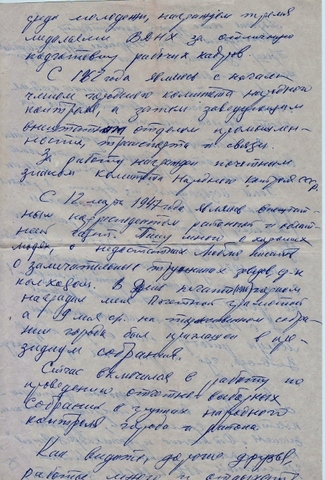 среди молодежи, награжден тремя
медалями ВДНХ за отличную
подготовку рабочих кадров.
С 19 года являюсь с начала
городского комитета народного
контроля, а затем заведующим
внештатным отделом промышлен-
ности, транспорта и связи.
За работу награжден почетным
знаком комитета народного контроля СССР.
С 12 марта 1947 года являюсь внештат-
ным корреспондентом районной и област-
ной газет. Пишу много о хороших
людях, о недостатках. Люблю писать
о замечательных тружениках
колхозов. В день
наградил меня Почетной грамотой
а 9 мая на торжественном собра-
нии города был приглашен в пре-
зидиум собрания.
Сейчас включился в работу по
проведению отчетно-выборных
собраний в группах народного
контроля города и района.
Как видите, дорогие друзья,
работы много и